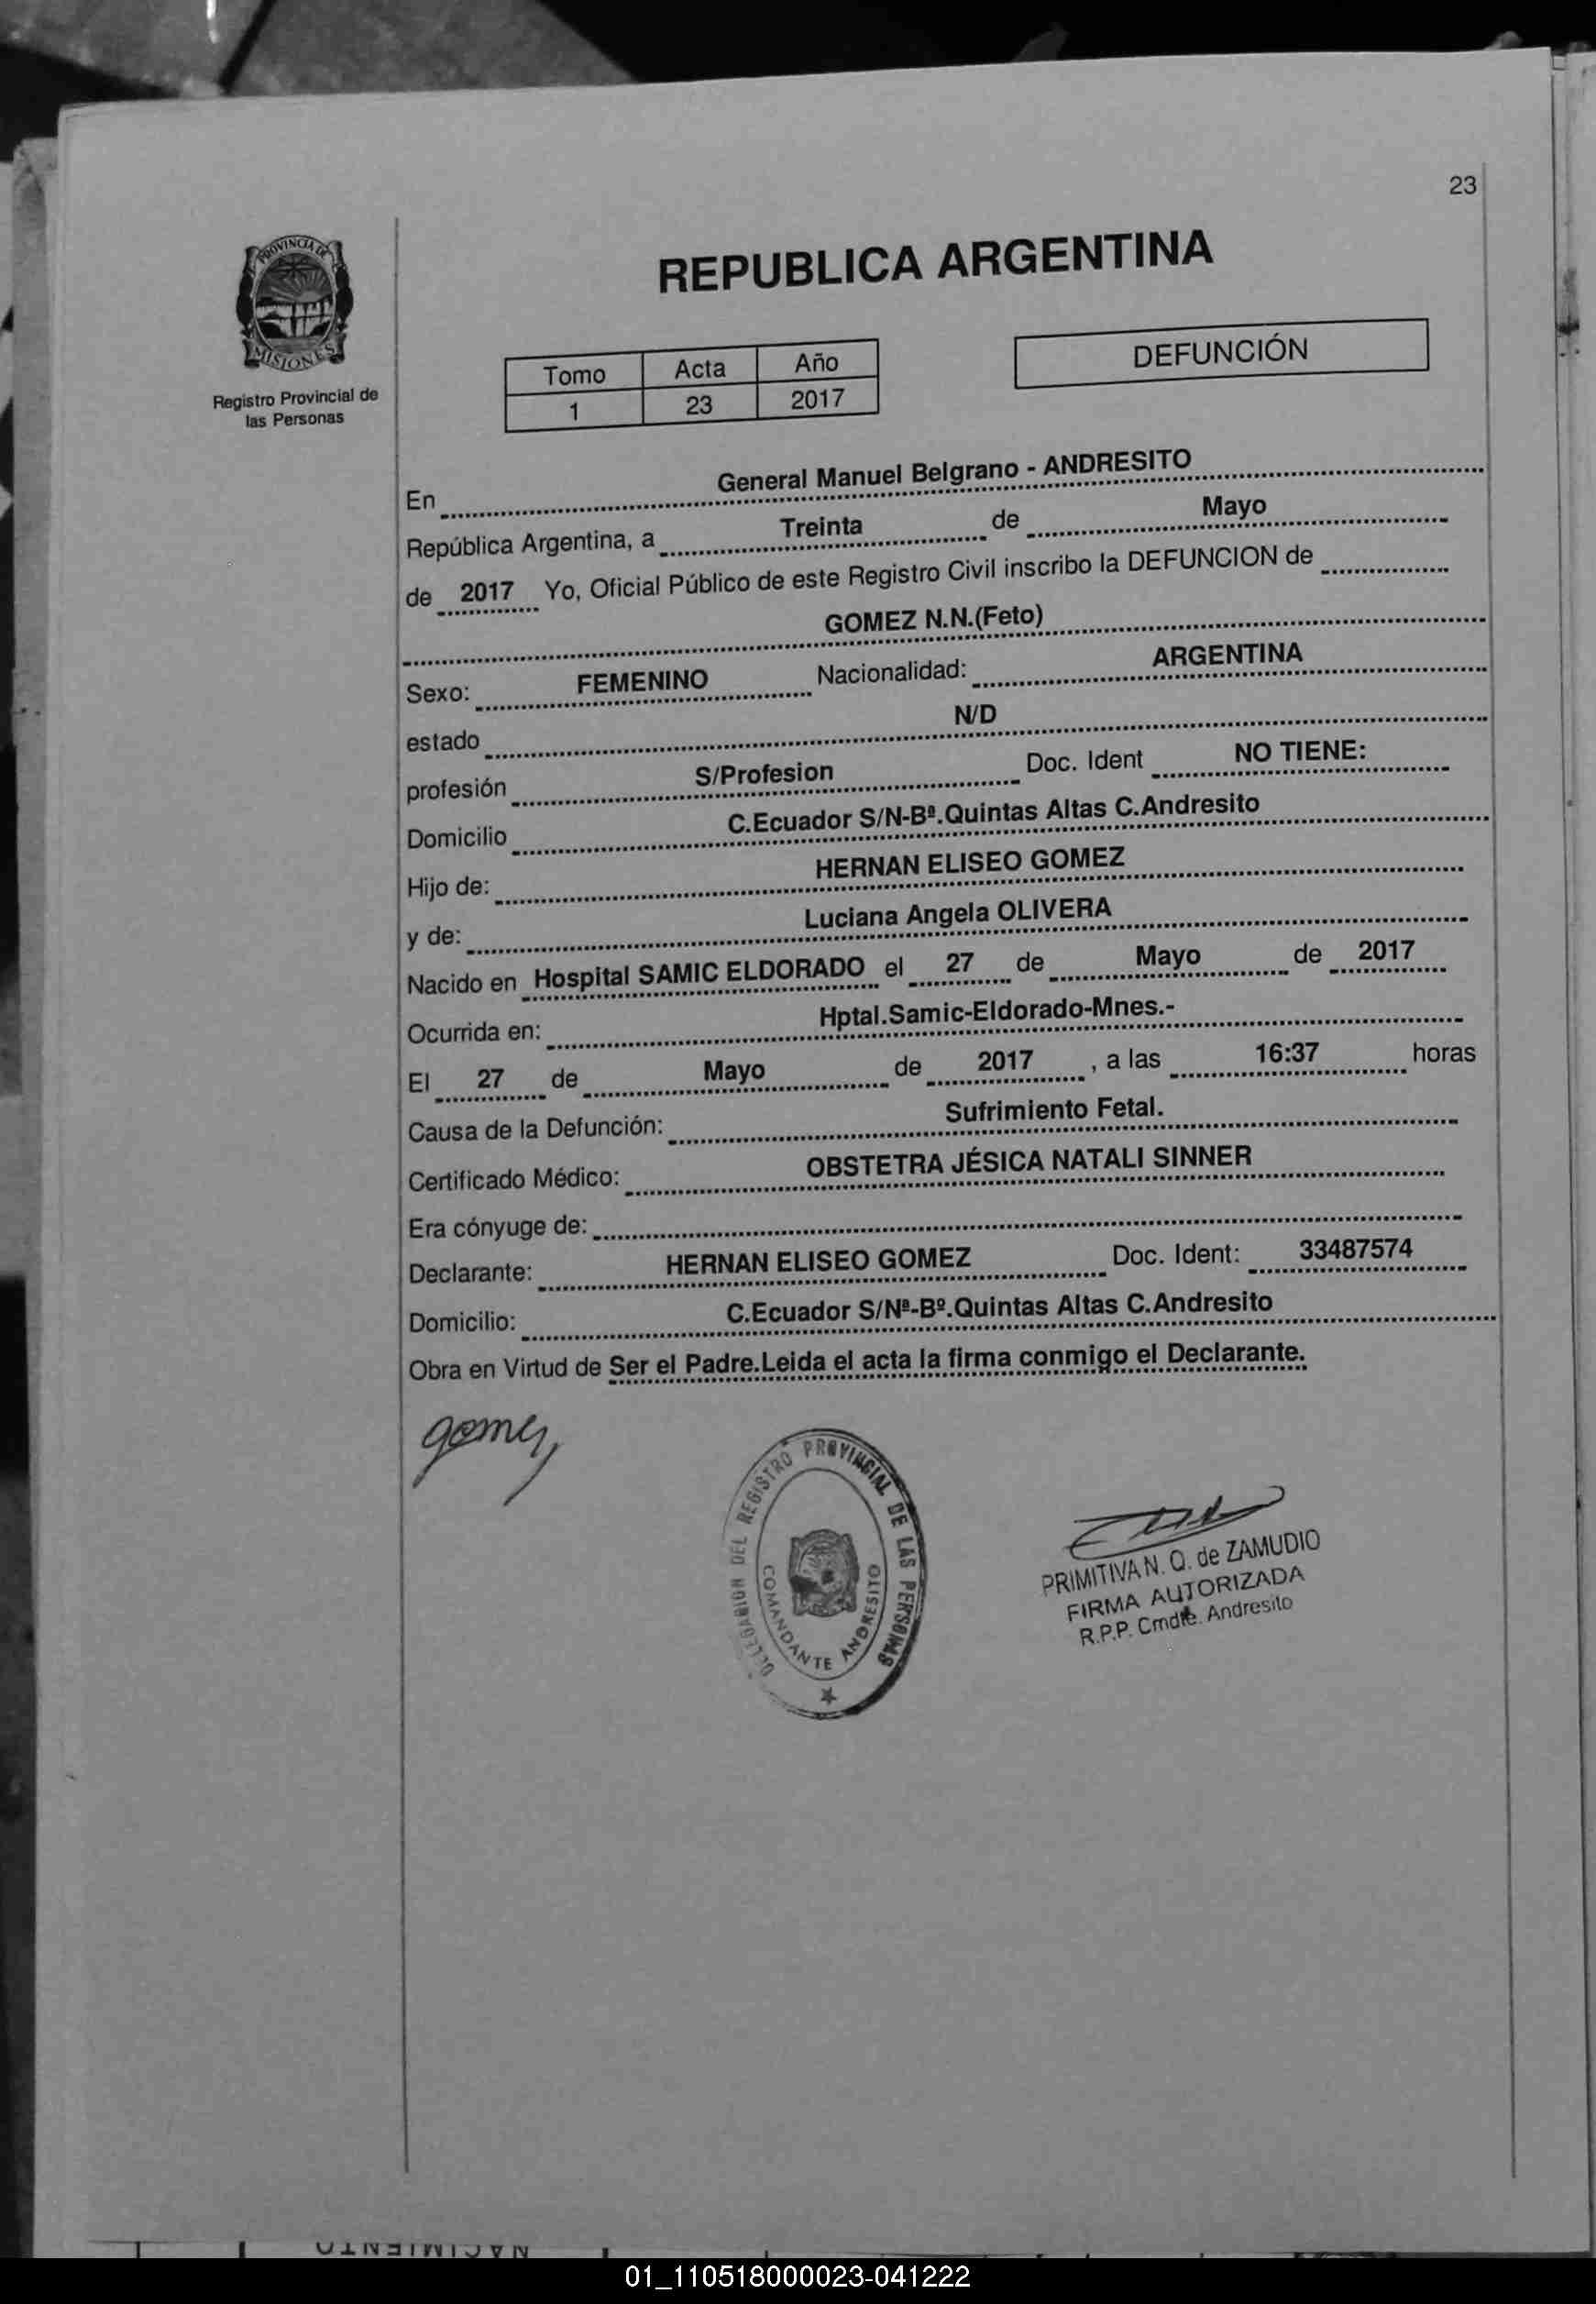 23
PROVINCIA DE
MISIONES
Registro Provincial de
las Personas
REPUBLICA ARGENTINA
Tomo Acta Año
1 23 2017
DEFUNCIÓN
En General Manuel Belgrano - ANDRESITO
República Argentina, a Treinta de Mayo
de 2017 Yo, Oficial Público de este Registro Civil inscribo la DEFUNCION de
GOMEZ N.N.(Feto)
Sexo: FEMENINO Nacionalidad: ARGENTINA
estado N/D
profesión S/Profesion Doc. Ident NO TIENE:
Domicilio C.Ecuador S/N-Bª.Quintas Altas C.Andresito
Hijo de: HERNAN ELISEO GOMEZ
y de: Luciana Angela OLIVERA
Nacido en Hospital SAMIC ELDORADO el 27 de Mayo de 2017
Ocurrida en: Hptal.Samic-Eldorado-Mnes.-
El 27 de Mayo de 2017 , a las 16:37 horas
Causa de la Defunción: Sufrimiento Fetal.
Certificado Médico: OBSTETRA JÉSICA NATALI SINNER
Era cónyuge de:
Declarante: HERNAN ELISEO GOMEZ Doc. Ident: 33487574
Domicilio: C.Ecuador S/Nª-Bº.Quintas Altas C.Andresito
Obra en Virtud de Ser el Padre.Leida el acta la firma conmigo el Declarante.
gomez
DELEGACION DEL REGISTRO PROVINCIAL DE LAS PERSONAS
COMANDANTE ANDRESITO
PRIMITIVA N. Q. de ZAMUDIO
FIRMA AUTORIZADA
R.P.P. Cmdte. Andresito
NACIMIENTO
01_110518000023-041222